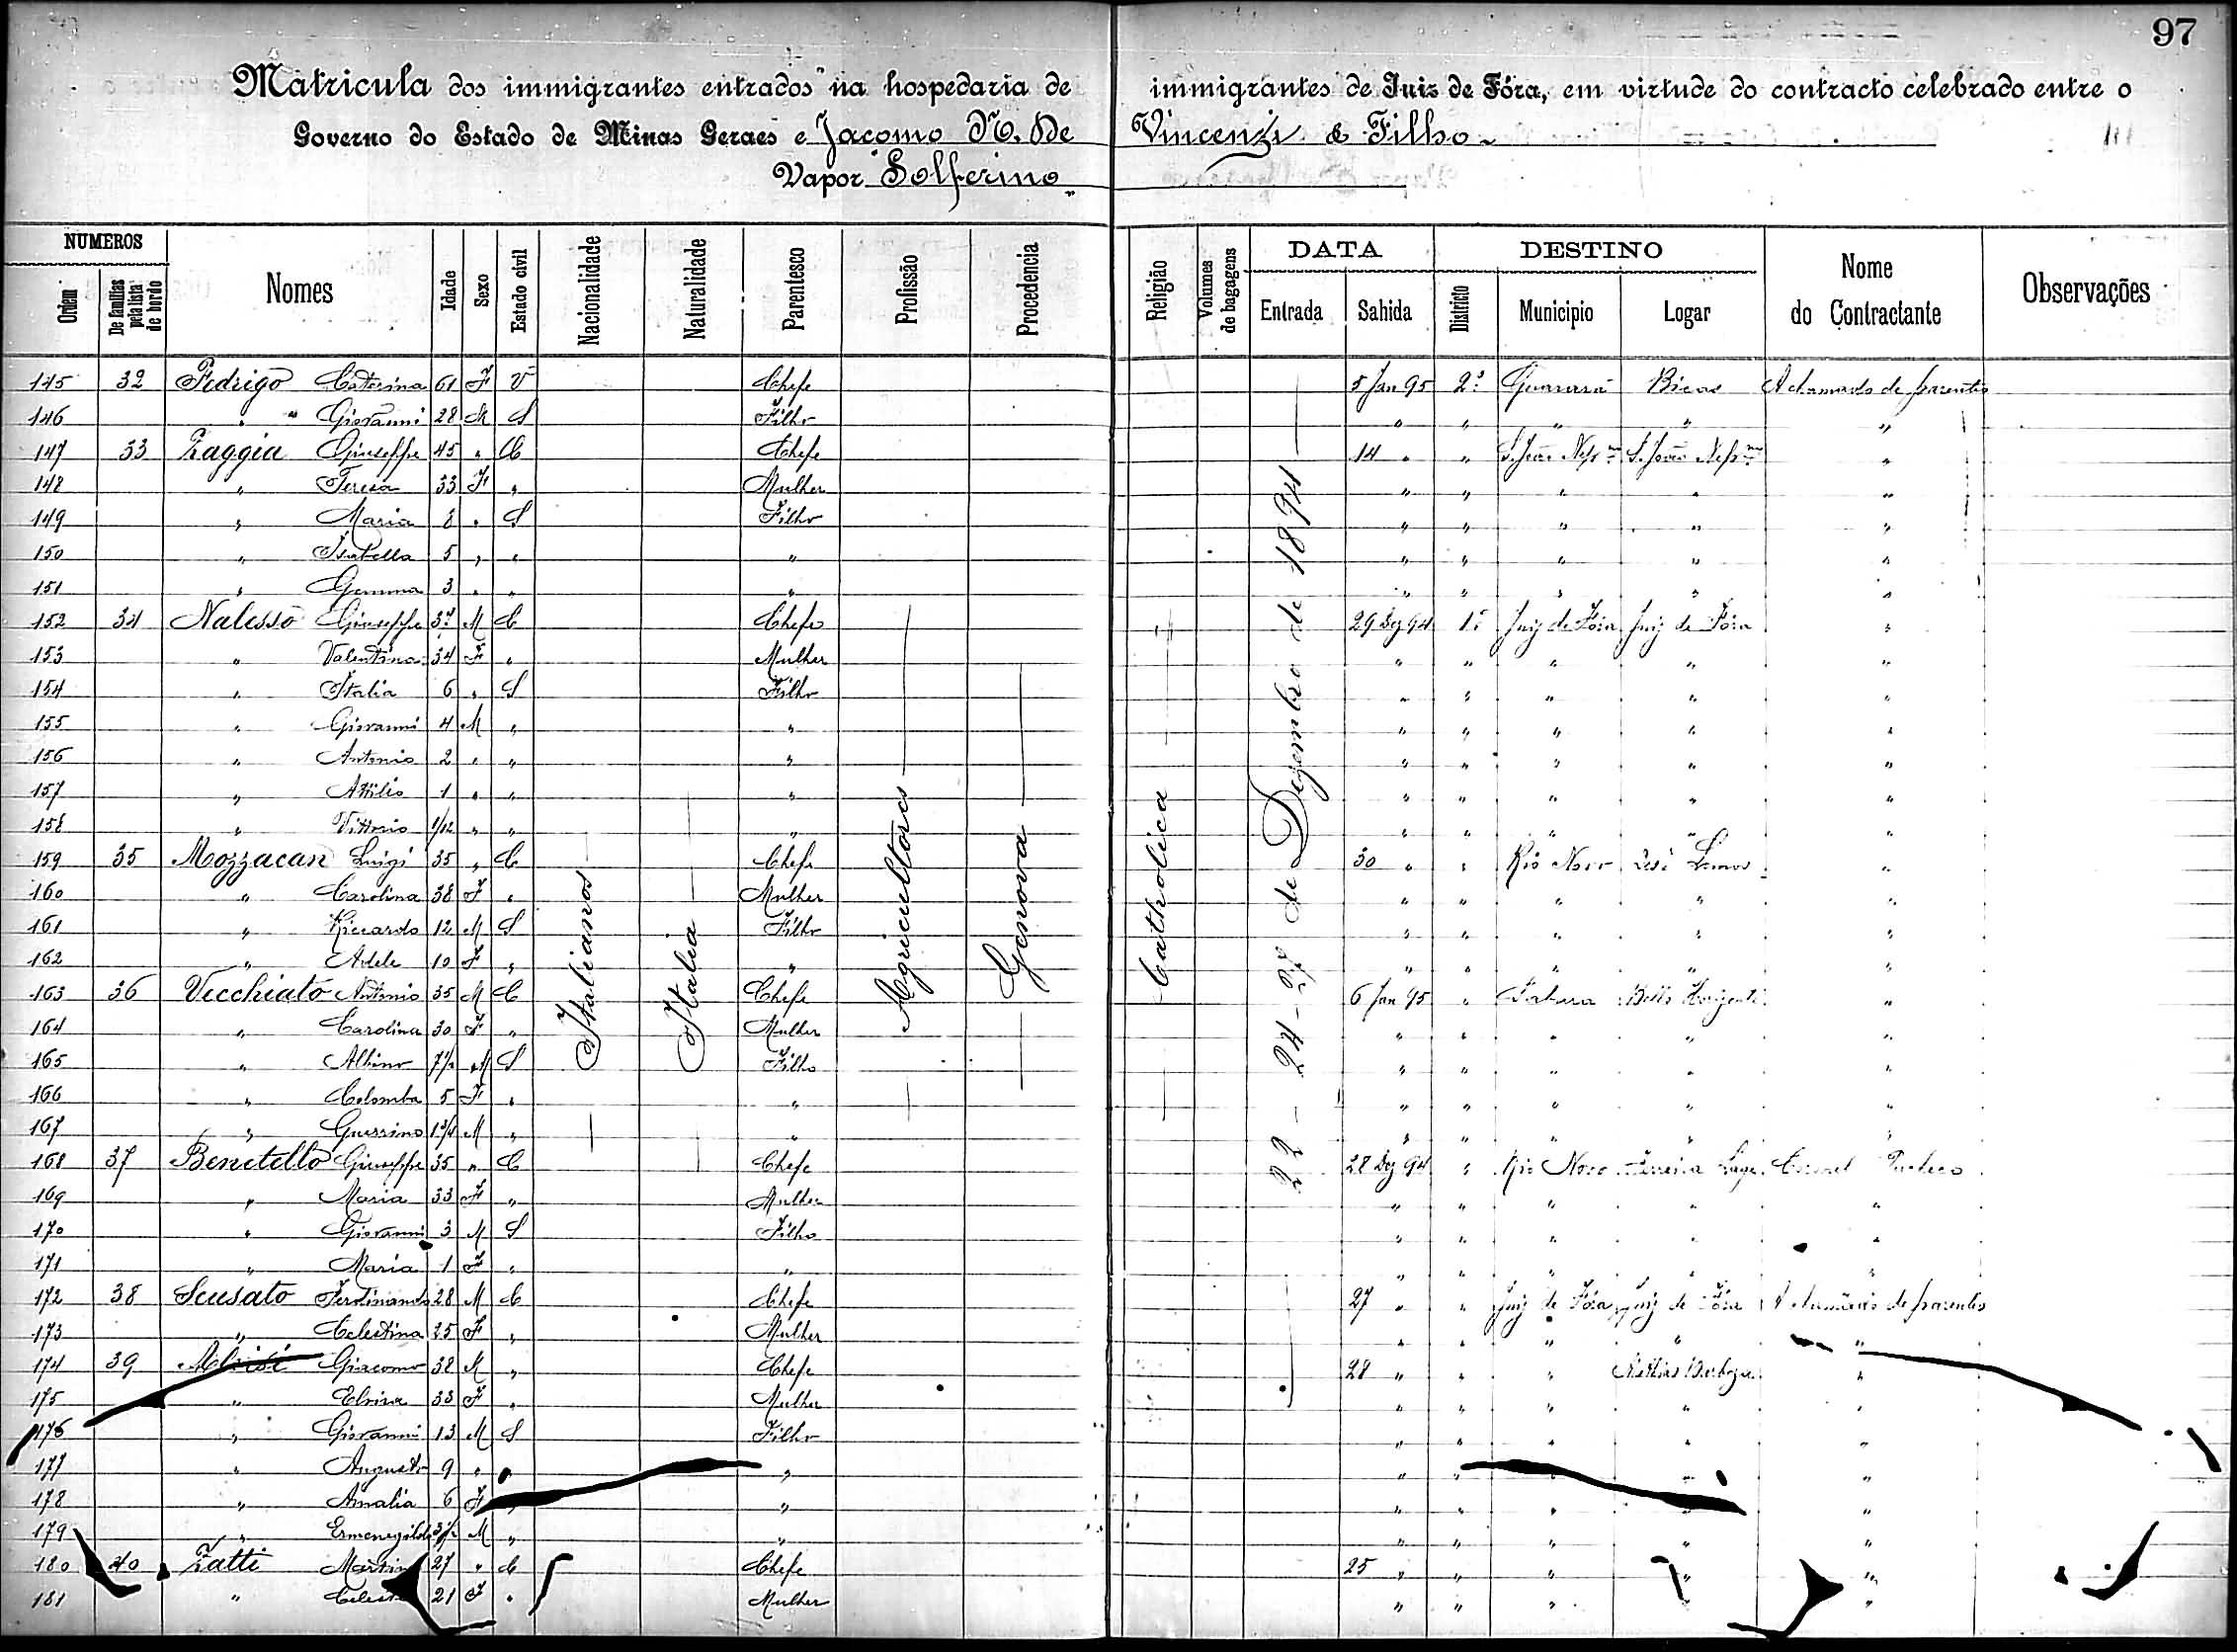 97
Matricula dos immigrantes entrados na hospedaria de immigrantes de Juiz de Fóra, em virtude do contracto celebrado entre o
Governo do Estado de Minas Geraes e Jacomo N. De Vincenzi & Filho
Vapor Solferino
NUMEROS DATA DESTINO
Ordem De familias pela lista de bordo Nomes Idade Sexo Estado civil Nacionalidade Naturalidade Parentesco Profissão Procedencia Religião Volumes de bagagens Entrada Sahida Districto Municipio Logar Nome do Contractante Observações
Italianos
Italia
Agricultores
Genova
Catholica
22 - 24 - 27 de Dezembro de 1894
145 32 Fedrigo Catterina 61 F V Chefe 5 Jan 95 2º Guarará Bicas A chamado de parentes
146 " Giovanni 28 M S Filho " " " " "
147 33 Zaggia Giuseppe 45 " C Chefe 14 " " S. João Nepno S. João Nepno "
148 " Teresa 33 F " Mulher " " " " "
149 " Maria 8 " S Filho " " " " "
150 " Isabella 5 " " " " " " " "
151 " Gemma 3 " " " " " " " "
152 34 Nalesso Giuseppe 37 M C Chefe 29 Dez 94 1º Juiz de Fóra Juiz de Fóra "
153 " Valentina 34 F " Mulher " " " " "
154 " Italia 6 " S Filho " " " " "
155 " Giovanni 4 M " " " " " " "
156 " Antonio 2 " " " " " " " "
157 " Attilio 1 " " " " " " " "
158 " Vittorio 1/12 " " " " " " " "
159 35 Mozzacan Luigi 35 " C Chefe 30 " " Rio Novo Lemos "
160 " Carolina 38 F " Mulher " " " " "
161 " Riccardo 12 M S Filho " " " " "
162 " Adele 10 F " " " " " " "
163 36 Vecchiato Antonio 35 M C Chefe 6 Jan 95 " Bello Horizonte "
164 " Carolina 30 F " Mulher " " " " "
165 " Albino 7 1/2 M S Filho " " " " "
166 " Colomba 5 F " " " " " " "
167 " Guerrino 1 3/4 M " " " " " " "
168 37 Benetello Giuseppe 35 " C Chefe 28 Dez 94 " Rio Novo Ferreira Lage Coronel Pacheco
169 " Maria 33 F " Mulher " " " " "
170 " Giovanni 3 M S Filho " " " " "
171 " Maria 1 F " " " " " " "
172 38 Scusato Ferdinando 28 M C Chefe 27 " " Juiz de Fóra Juiz de Fóra A chamado de parentes
173 " Celestina 25 F " Mulher " " " " "
174 39 Giacomo 38 M " Chefe 28 " " " Mathias Barboza "
175 " Elvira 33 F " Mulher " " " " "
176 " Giovanni 13 M S Filho " " " " "
177 " Augusto 9 " " " " " " " "
178 " Amalia 6 F " " " " " " "
179 " Ermenegildo 3 1/2 M " " " " " " "
180 40 Zatti Martino 27 " C Chefe 25 " " " " "
181 " 21 F " Mulher " " " " "